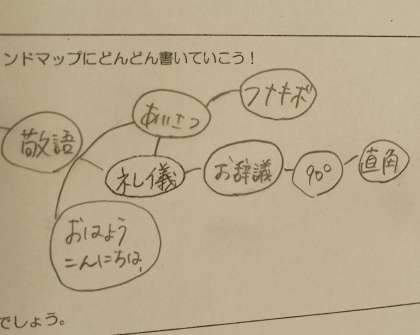 ンドマップにどんどん書いていこう！
フナキボ
あいさつ
敬語
礼儀
お辞議
90°
直角
おはよう
こんにちは、
でしょう。